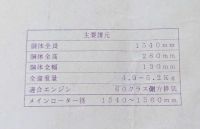 主要諸元
胴体全長 1540mm
胴体全高 260mm
胴体全幅 190mm
全備重量 4.9~5.2Kg
適合エンジン 60クラス側方排気
メインローター径 1540~1560mm